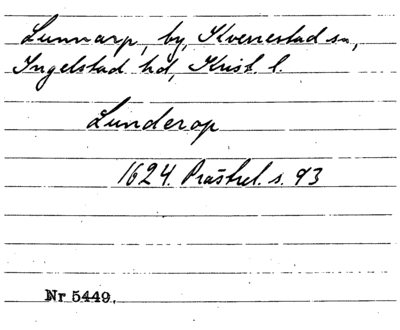 Lunnarp, by, Kverrestad sn,
Ingelstad hd, Krist. l.
Lunderop
1624. Prästrel. s. 93
Nr 5449.